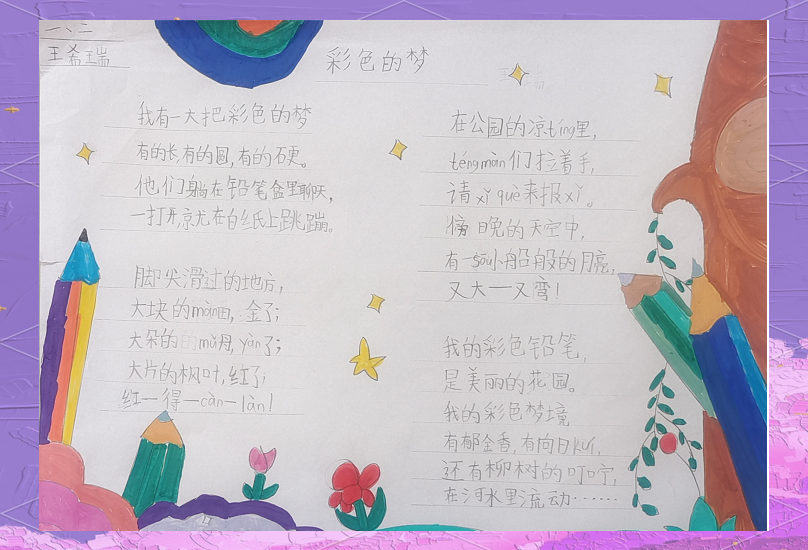 一、二
王希瑞
彩色的梦
我有一大把彩色的梦
有的长,有的圆,有的石更。
他们躺在铅笔盒里聊天,
一打开,京尤在白纸上跳蹦。
脚尖滑过的地方,
大块的màn田,金了;
大朵的mǔ丹,yàn了;
大片的枫叶,红了;
红一得一càn一làn!
在公园的凉tíng里,
téng màn们拉着手,
请xǐ què来报xǐ。
日晚的天空中,
有一sōu小船般的月亮,
又大一又弯!
我的彩色铅笔,
是美丽的花园。
我的彩色梦境
有郁金香,有向日kuí,
还有柳树的叮咛,
在河水里流动……